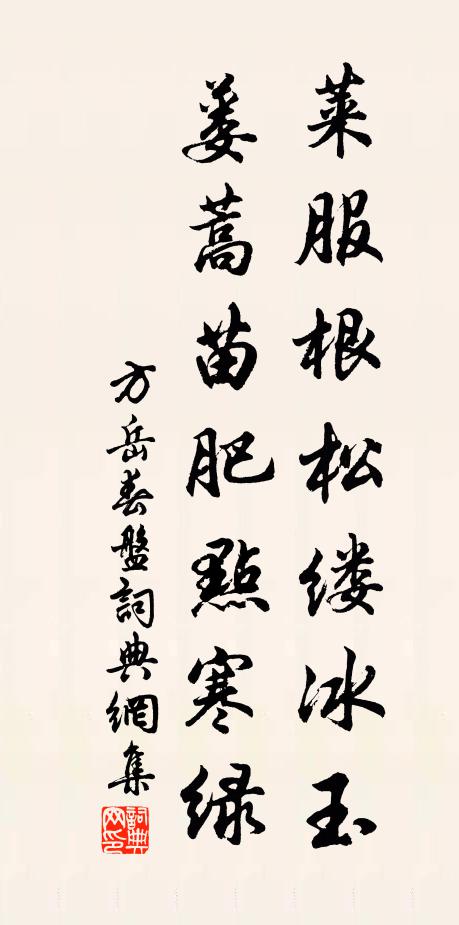 莱服根松缕冰玉
蒌蒿苗肥點寒绿
方岳春盤詞典網集
詞典
网印